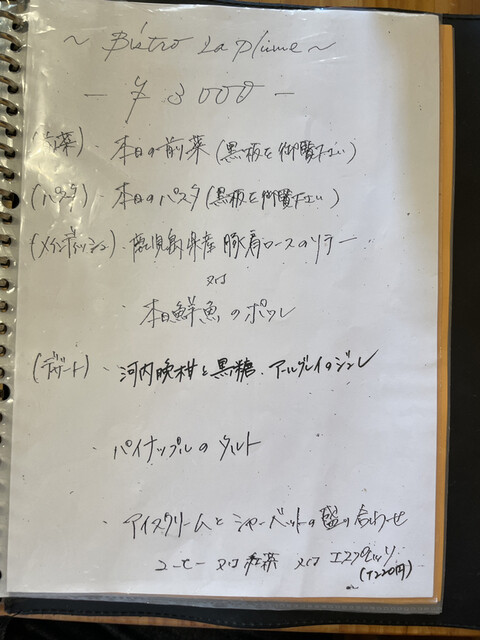 ~ Bistro La plume ~
- ¥ 3000 -
(前菜) ・ 本日の前菜 (黒板を御覧下さい)
(パスタ) ・ 本日のパスタ (黒板を御覧下さい)
(メインディッシュ) ・ 鹿児島県産 豚肩ロースのソテー
又は
本日鮮魚のポワレ
(デザート) ・ 河内晩柑と黒糖・アールグレイのジュレ
・ パイナップルのタルト
・ アイスクリームとシャーベットの盛り合わせ
コーヒー 又は 紅茶 又は エスプレッソ
(+220円)